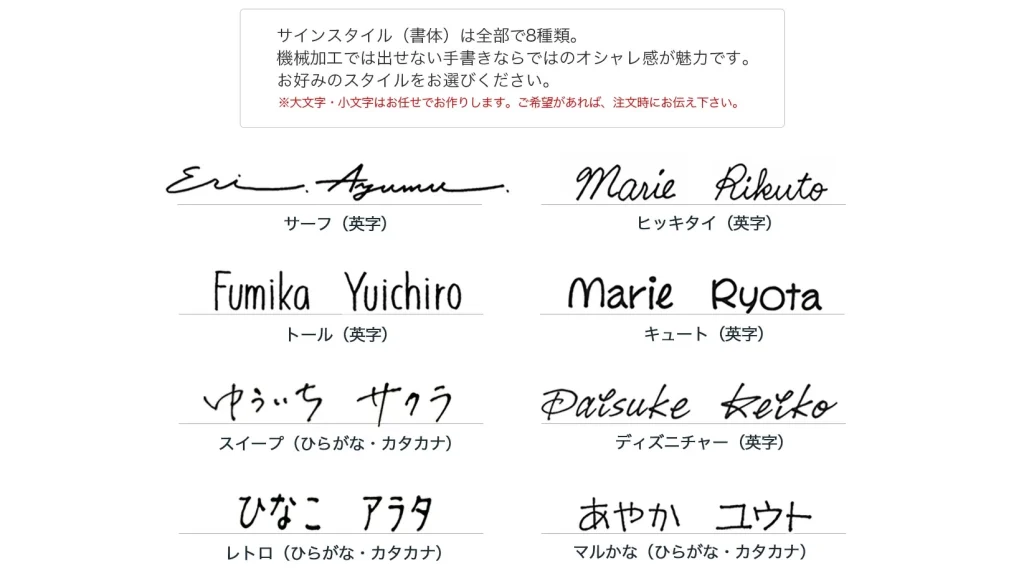 サインスタイル（書体）は全部で8種類。
機械加工では出せない手書きならではのオシャレ感が魅力です。
お好みのスタイルをお選びください。
※大文字・小文字はお任せでお作りします。ご希望があれば、注文時にお伝え下さい。
Eri. Ayumu.
サーフ（英字）
Marie Rikuto
ヒッキタイ（英字）
Fumika Yuichiro
トール（英字）
Marie Ryota
キュート（英字）
ゆういち サクラ
スイープ（ひらがな・カタカナ）
Daisuke Keiko
ディズニチャー（英字）
ひなこ アラタ
レトロ（ひらがな・カタカナ）
あやか ユウト
マルかな（ひらがな・カタカナ）